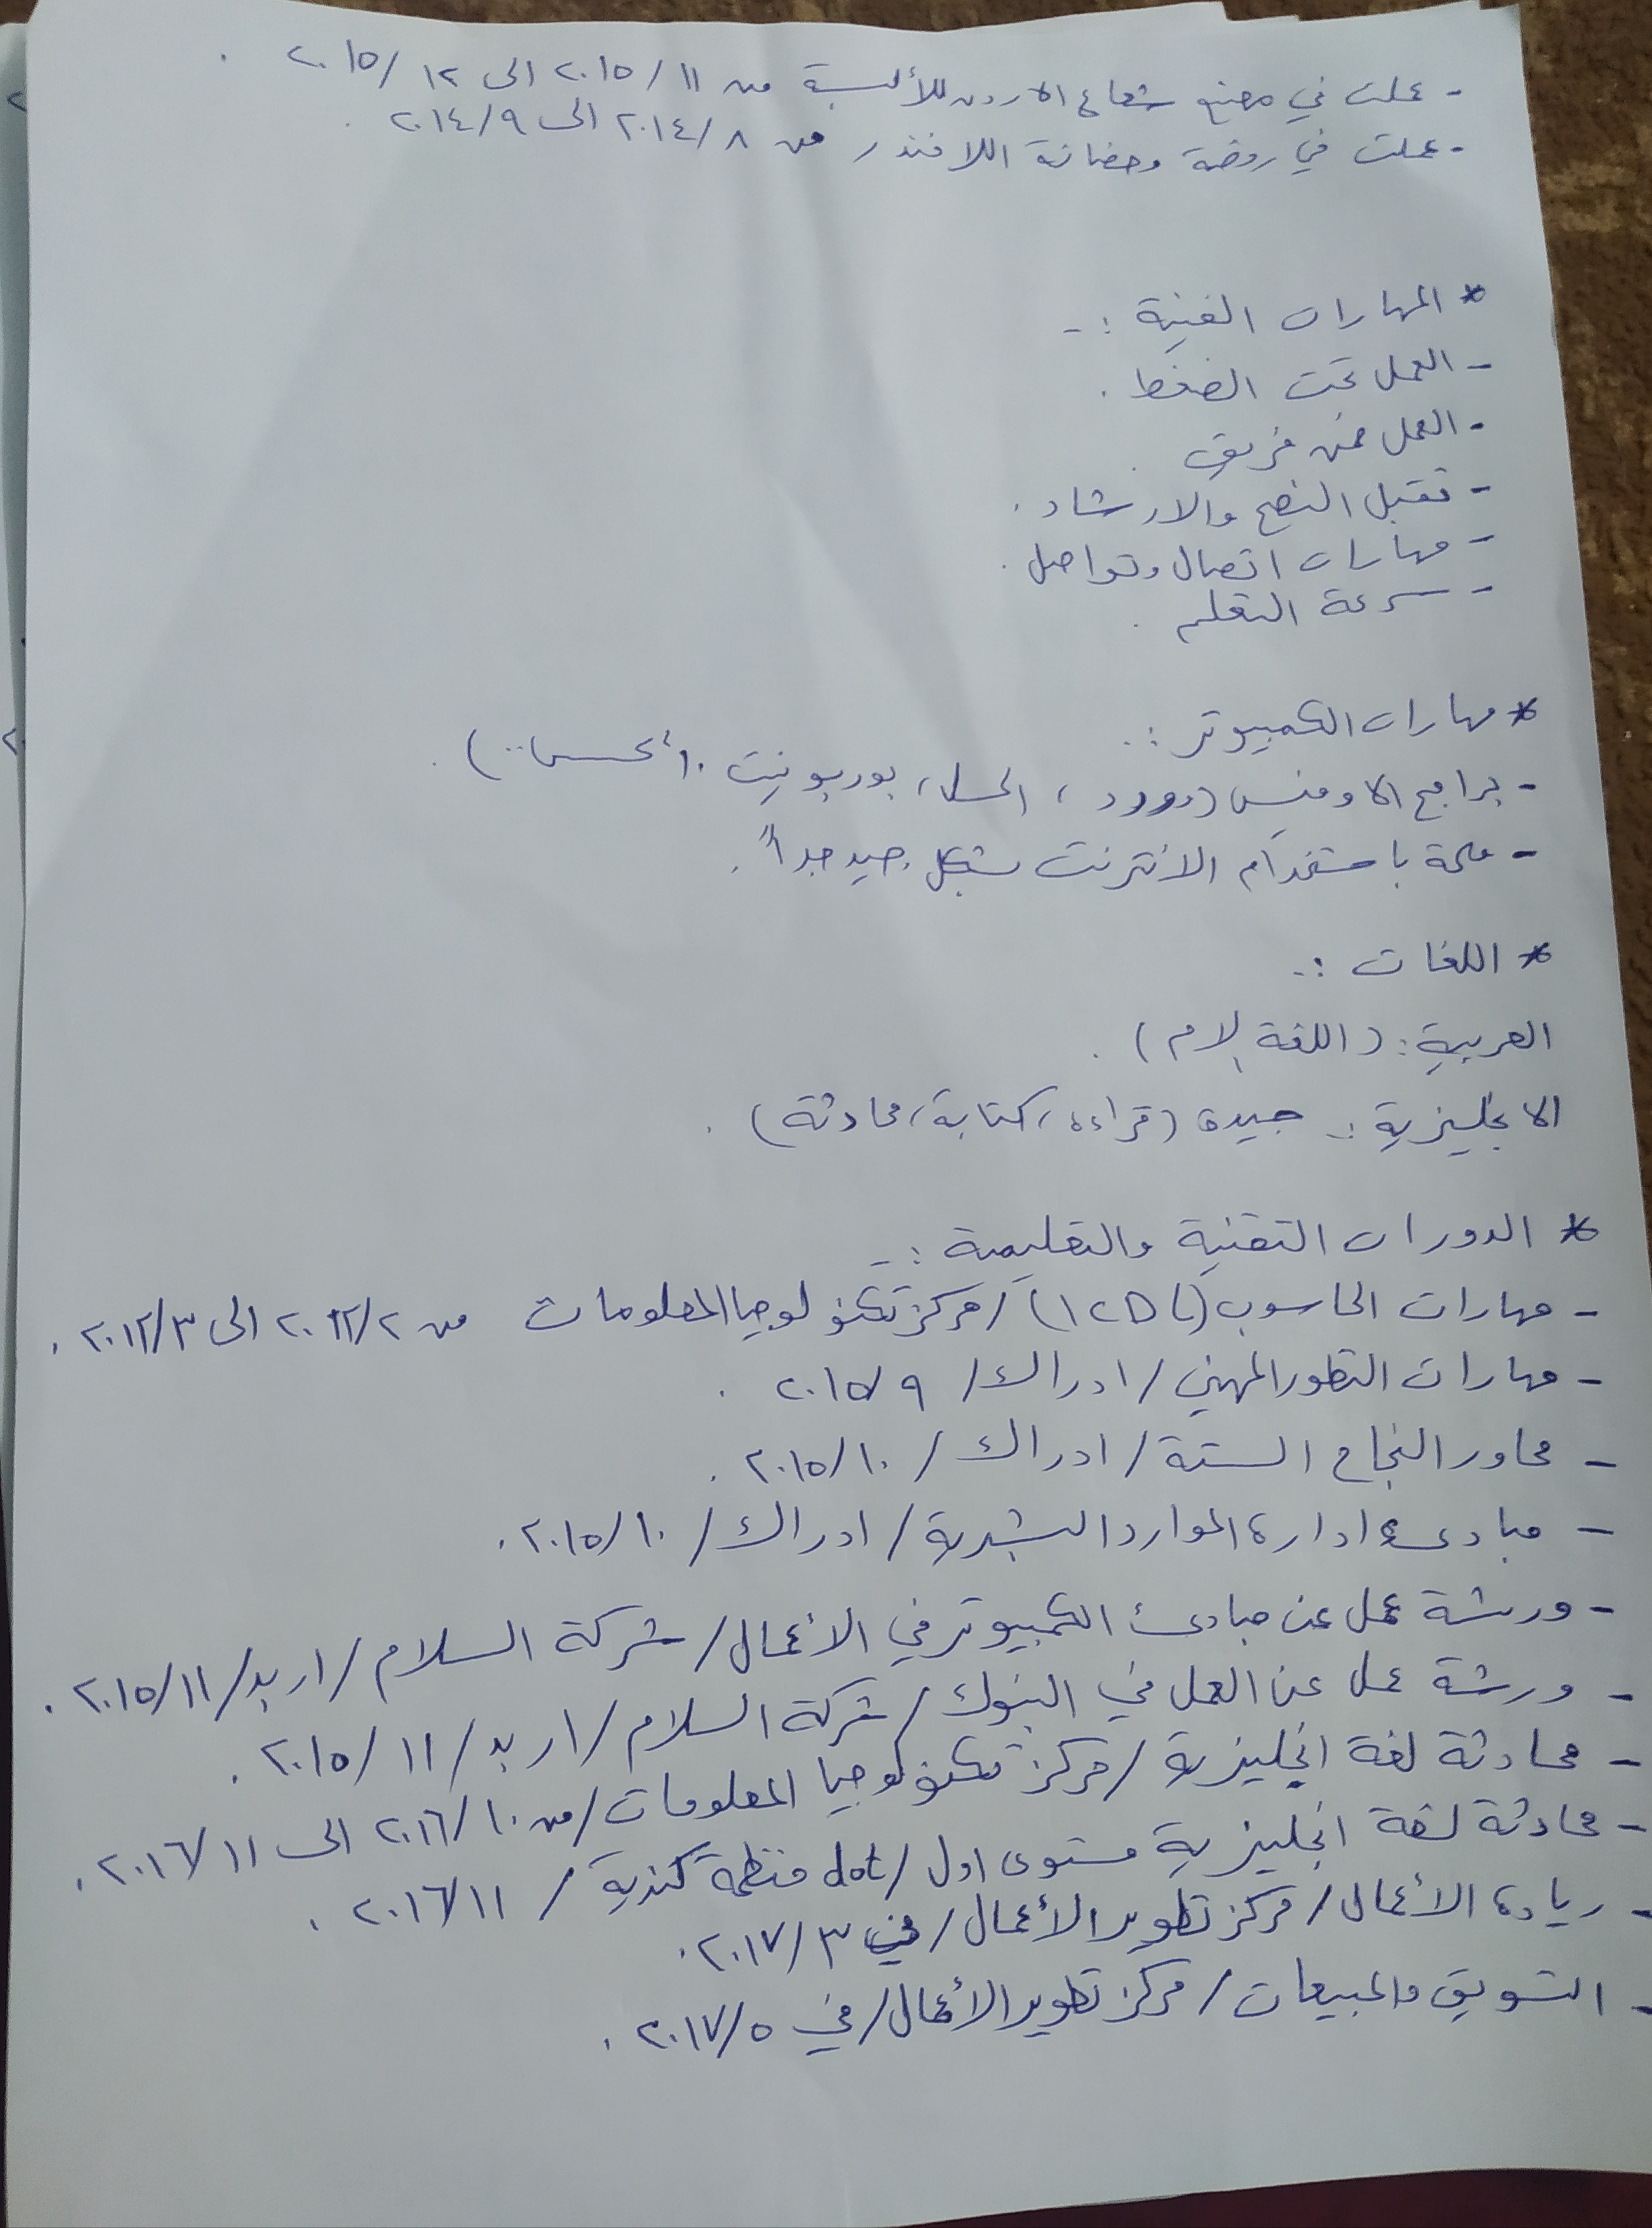 - عملت في مصنع شعاع الاردن للألبسة من ٢٠١٥/١١ الى ٢٠١٥/١٢ .
- عملت في روضة وحضانة اللافندر من ٢٠١٤/٨ الى ٢٠١٤/٩ .
* المهارات الفنية :-
- العمل تحت الضغط .
- العمل ضمن فريق .
- تقبل النصح والارشاد .
- مهارات اتصال وتواصل .
- سرعة التعلم .
* مهارات الكمبيوتر :-
- برامج الاوفيس (وورد ، اكسل ، بوربوينت ، أكسس ..) .
- ملمة باستخدام الانترنت بشكل جيد جداً .
* اللغات :-
العربية : (اللغة الام) .
الانجليزية :- جيدة (قراءة ، كتابة ، محادثة) .
* الدورات التقنية والتعليمية :-
- مهارات الحاسوب (ICDL) / مركز تكنولوجيا المعلومات من ٢٠١٢/٢ الى ٢٠١٢/٣ .
- مهارات التطور المهني / ادراك / ٢٠١٥/٩ .
- محاور النجاح الستة / ادراك / ٢٠١٥/١٠ .
- مبادئ ادارة الموارد البشرية / ادراك / ٢٠١٥/١٠ .
- ورشة عمل عن مبادئ الكمبيوتر في الأعمال / شركة السلام / اربد / ٢٠١٥/١١ .
- ورشة عمل عن العمل في البنوك / شركة السلام / اربد / ٢٠١٥/١١ .
- محادثة لغة انجليزية / مركز تكنولوجيا المعلومات / من ٢٠١٦/١٠ الى ٢٠١٦/١١ .
- محادثة لغة انجليزية مستوى اول / dot منظمة كندية / ٢٠١٦/١١ .
- ريادة الأعمال / مركز تطوير الأعمال / في ٢٠١٧/٣ .
- التسويق والمبيعات / مركز تطوير الأعمال / في ٢٠١٧/٥ .